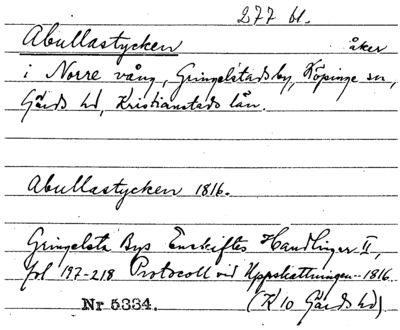 277 bl.
Abullastycken åker
i Norre vång, Gringelstadsby, Köpinge sn,
Gärds hd, Kristianstads län.
Abullastycken 1816.
Gringelsta Bys Enskiftes Handlingar II,
fol 197-218 Protocoll vid Uppskattningen - 1816
Nr 5334. (K 10 Gärds hd)